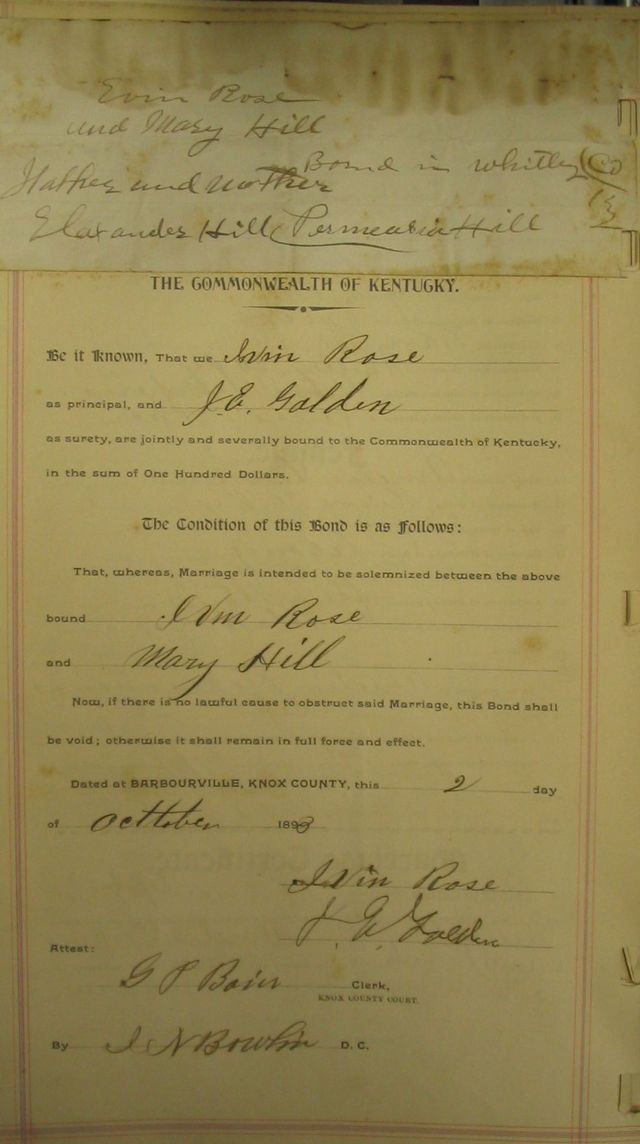 Evin Rose
and Mary Hill
Bornd in whitley Co
Hather and mother
Elaxander Hill Permealia Hill
THE COMMONWEALTH OF KENTUCKY.
Be it Known, That we Ivin Rose
as principal, and J. E. Golden
as surety, are jointly and severally bound to the Commonwealth of Kentucky,
in the sum of One Hundred Dollars.
The Condition of this Bond is as Follows:
That, whereas, Marriage is intended to be solemnized between the above
bound Ivin Rose
and Mary Hill
Now, if there is no lawful cause to obstruct said Marriage, this Bond shall
be void; otherwise it shall remain in full force and effect.
Dated at BARBOURVILLE, KNOX COUNTY, this 2 day
of octtober 1893
Ivin Rose
J. E. Golden
Attest:
G P Bain Clerk,
KNOX COUNTY COURT.
By I N Bowlin D. C.